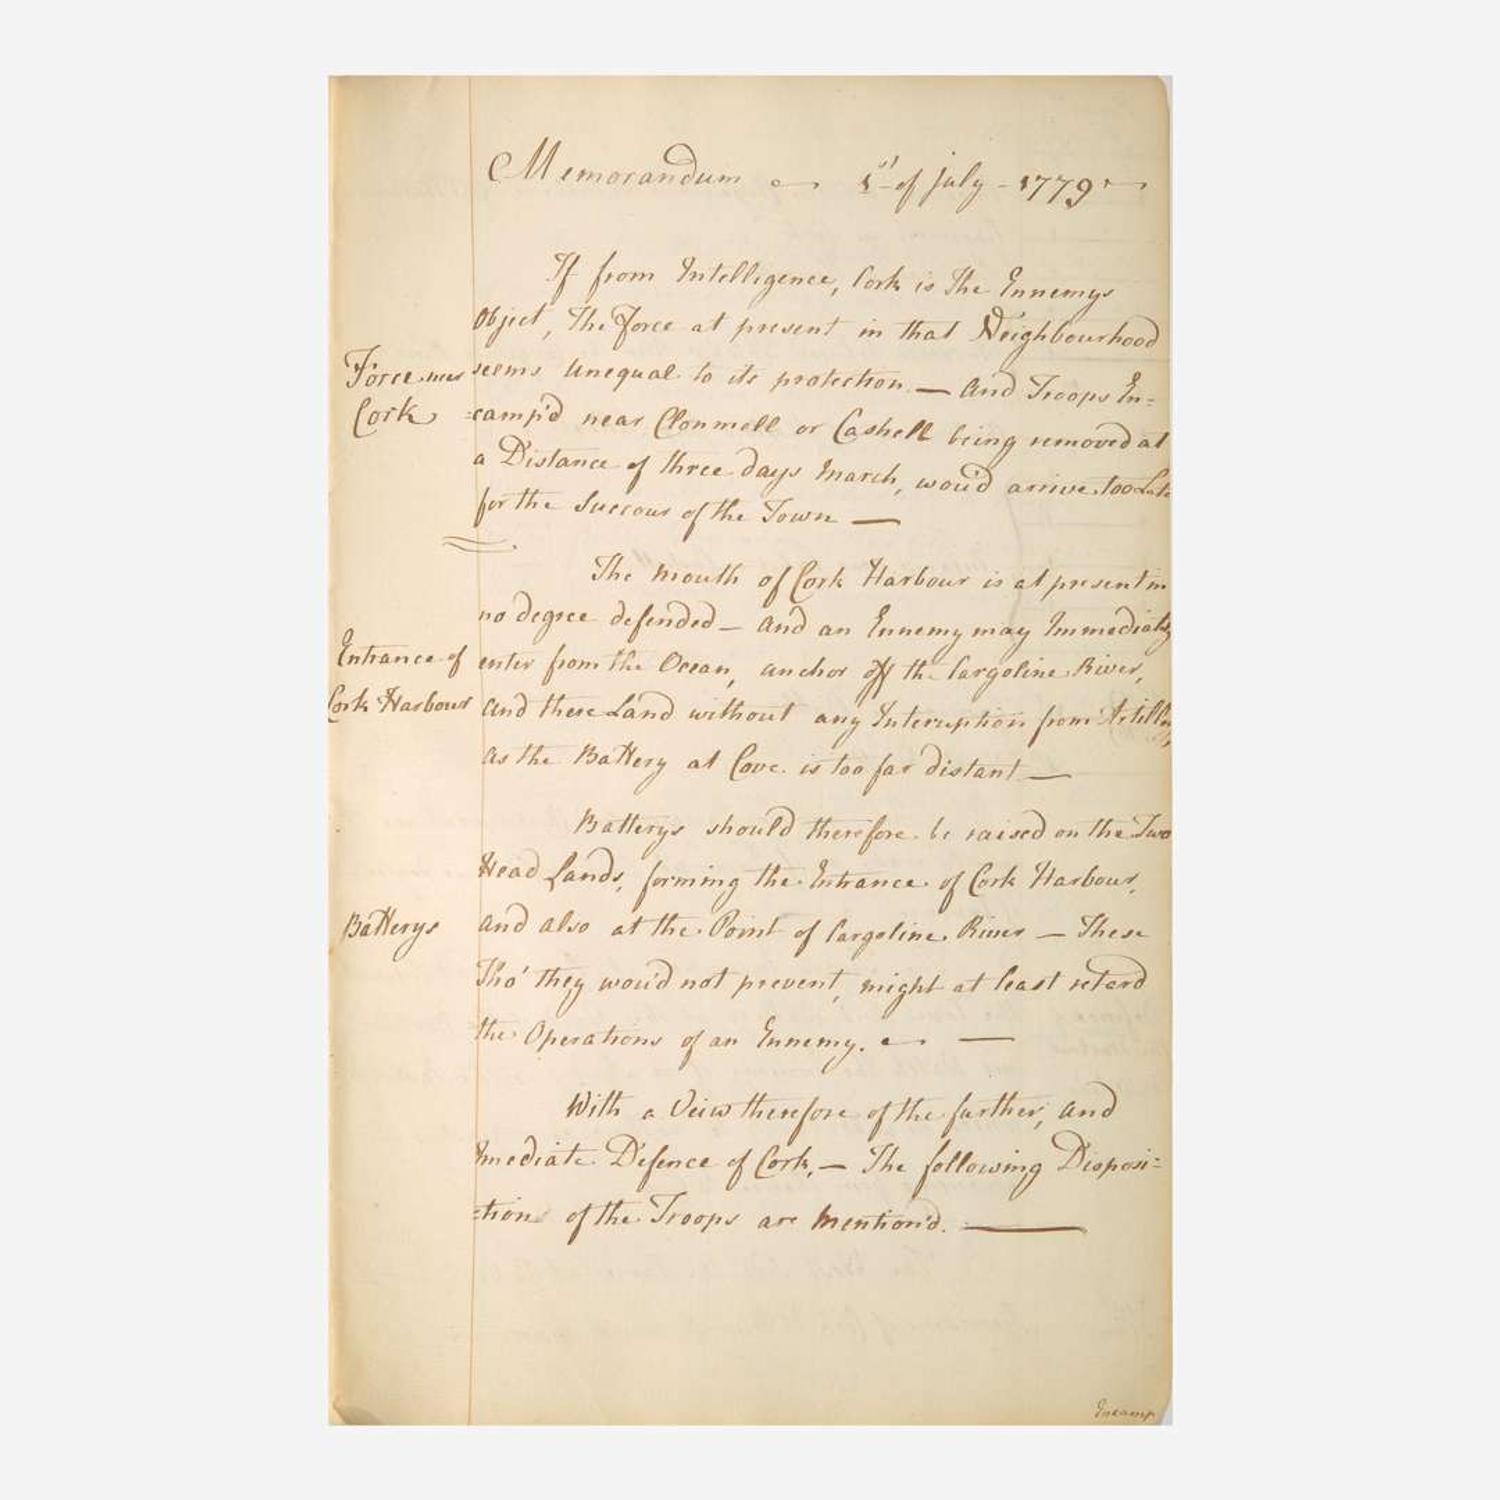 Memorandum — 1st of july - 1779 —
If from Intelligence, Cork is The Ennemys
Object, The Force at present in that Neighbourhood
Force near
seems Unequal to its protection — And Troops En=
Cork
=camp'd near Clonmell or Cashell being removed at
a Distance of three days March, wou'd arrive too Late
for the Succour of the Town —
The Mouth of Cork Harbour is at present in
no degree defended — And an Ennemy may Immediately
Entrance of
enter from the Ocean, anchor off the Cargoline River,
Cork Harbour
And there Land without any Interruption from Artillery
As the Battery at Cove is too far distant —
Batterys should therefore be raised on the Two
Head Lands, forming the Entrance of Cork Harbour,
Batterys
And also at the Point of Cargoline River — These
Tho' they wou'd not prevent, might at least retard
the Operations of an Ennemy. —
With a View therefore of the further, And
Imediate Defence of Cork, — The following Disposi=
=tions of the Troops are Mention'd. —
Encamp